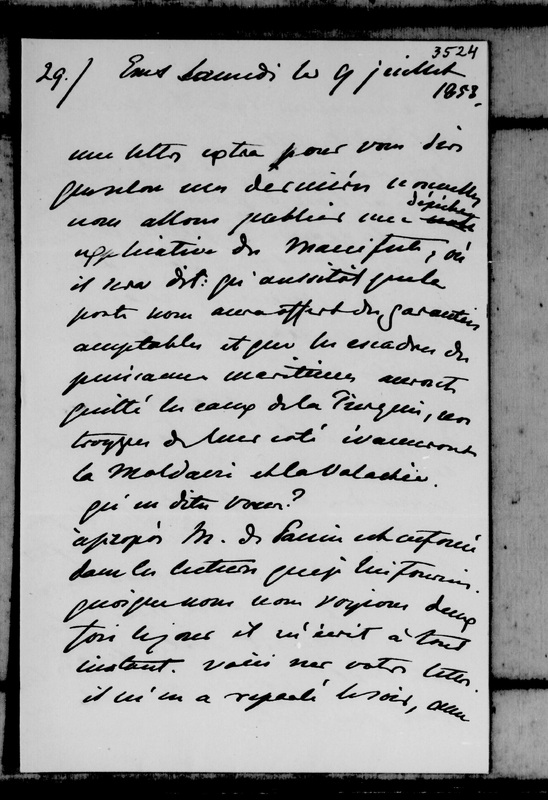 3524
29./ Ems Samedi le 9 juillet
1853.
une lettre extra pour vous dire
que selon mes dernières nouvelles
nous allons publier une dépêche
explicative du Manifeste, où
il sera dit: qu'aussitôt que la
porte nous aura offert des garanties
acceptables et que les escadres des
puissances maritimes auront
quitté les eaux de la Turquie, nos
troupes de leur coté évacueront
la Moldavie et la Valachie.
qu'en dites vous?
àpropos M. de
dans les lectures que je lui fournis.
quoique nous nous voyions deux
fois le jour il m'écrit à tout
instant. voici sur votre lettre.
il m'en a reparlé le soir, avec